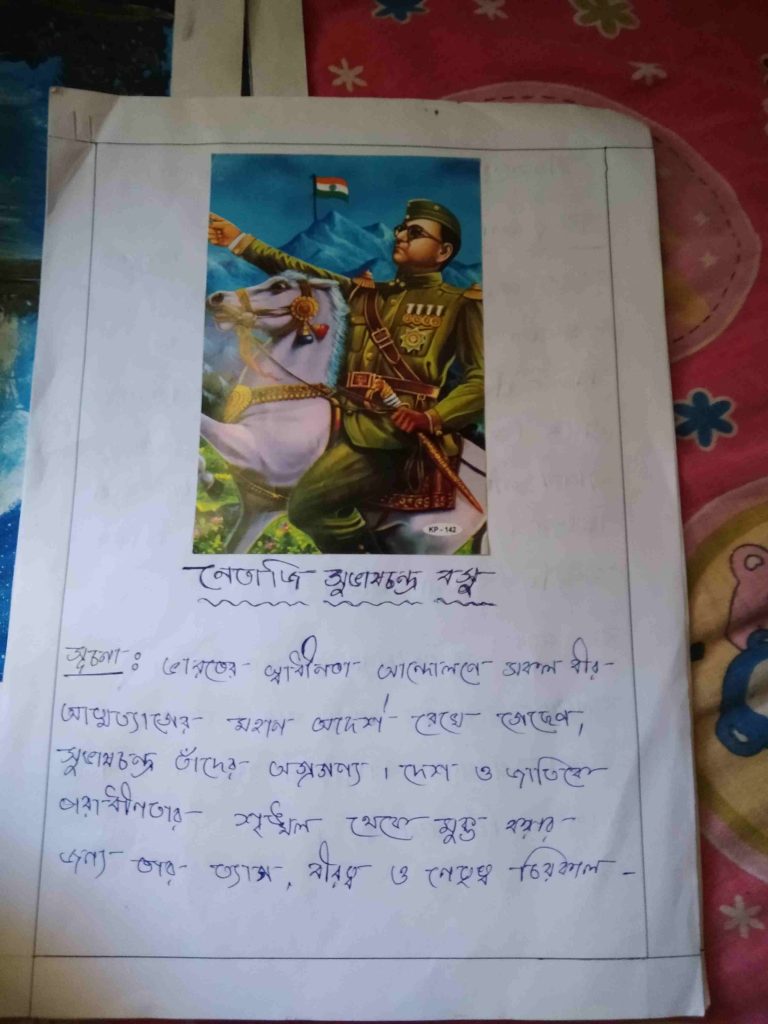 KP-142
নেতাজি সুভাষচন্দ্র বসু
সূচনা : ভারতের স্বাধীনতা আন্দোলনে সকল বীর
আত্মত্যাগের মহান আদর্শ রেখে গেছেন,
সুভাষচন্দ্র তাঁদের অগ্রগণ্য । দেশ ও জাতিকে
পরাধীনতার শৃঙ্খল থেকে মুক্ত করার
জন্য তার ত্যাগ, বীরত্ব ও নেতৃত্ব চিরকাল